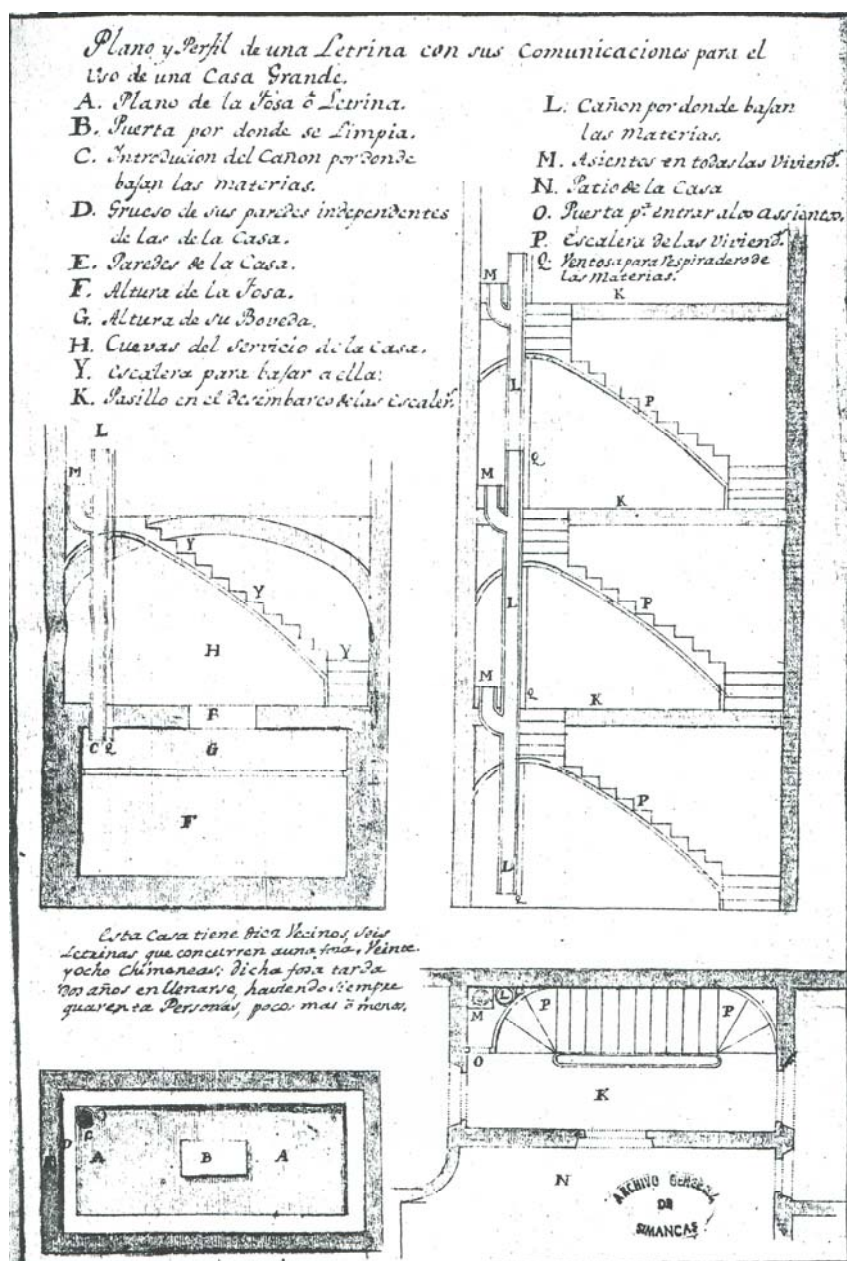 Plano y Perfil de una Letrina con sus Comunicaciones para el
Uso de una Casa Grande.
A. Plano de la Fosa ò Letrina.
B. Puerta por donde se Limpia.
C. Introducion del Cañon por donde
bajan las materias.
D. Grueso de sus paredes independentes
de las de la Casa.
E. Paredes de la Casa.
F. Altura de la Fosa.
G. Altura de su Boveda.
H. Cuevas del servicio de la Casa.
Y. escalera para bajar a ella:
K. Pasillo en el desembarco de las Escaler.
L. Cañon por donde bajan
las materias.
M. Asientos en todas las Viviend.
N. Patio de la Casa
O. Puerta pª entrar a los assientos.
P. Escalera de las Viviend.
Q. Ventosa para respiradero de
las Materias.
L
M
Y
Y
H
Y
B
C Q
G
F
M
K
L
P
Q
M
K
L
P
Q
M
K
P
L
Q
Esta Casa tiene diez Vecinos, seis
Letrinas que concurren a una fosa, Veinte
y ocho chimeneas: dicha fosa tarda
dos años en llenarse, haviendo siempre
quarenta Personas, poco mas ò menos.
E
D
C
A
B
A
M
L
P
P
O
K
N
ARCHIVO GENERAL
DE
SIMANCAS